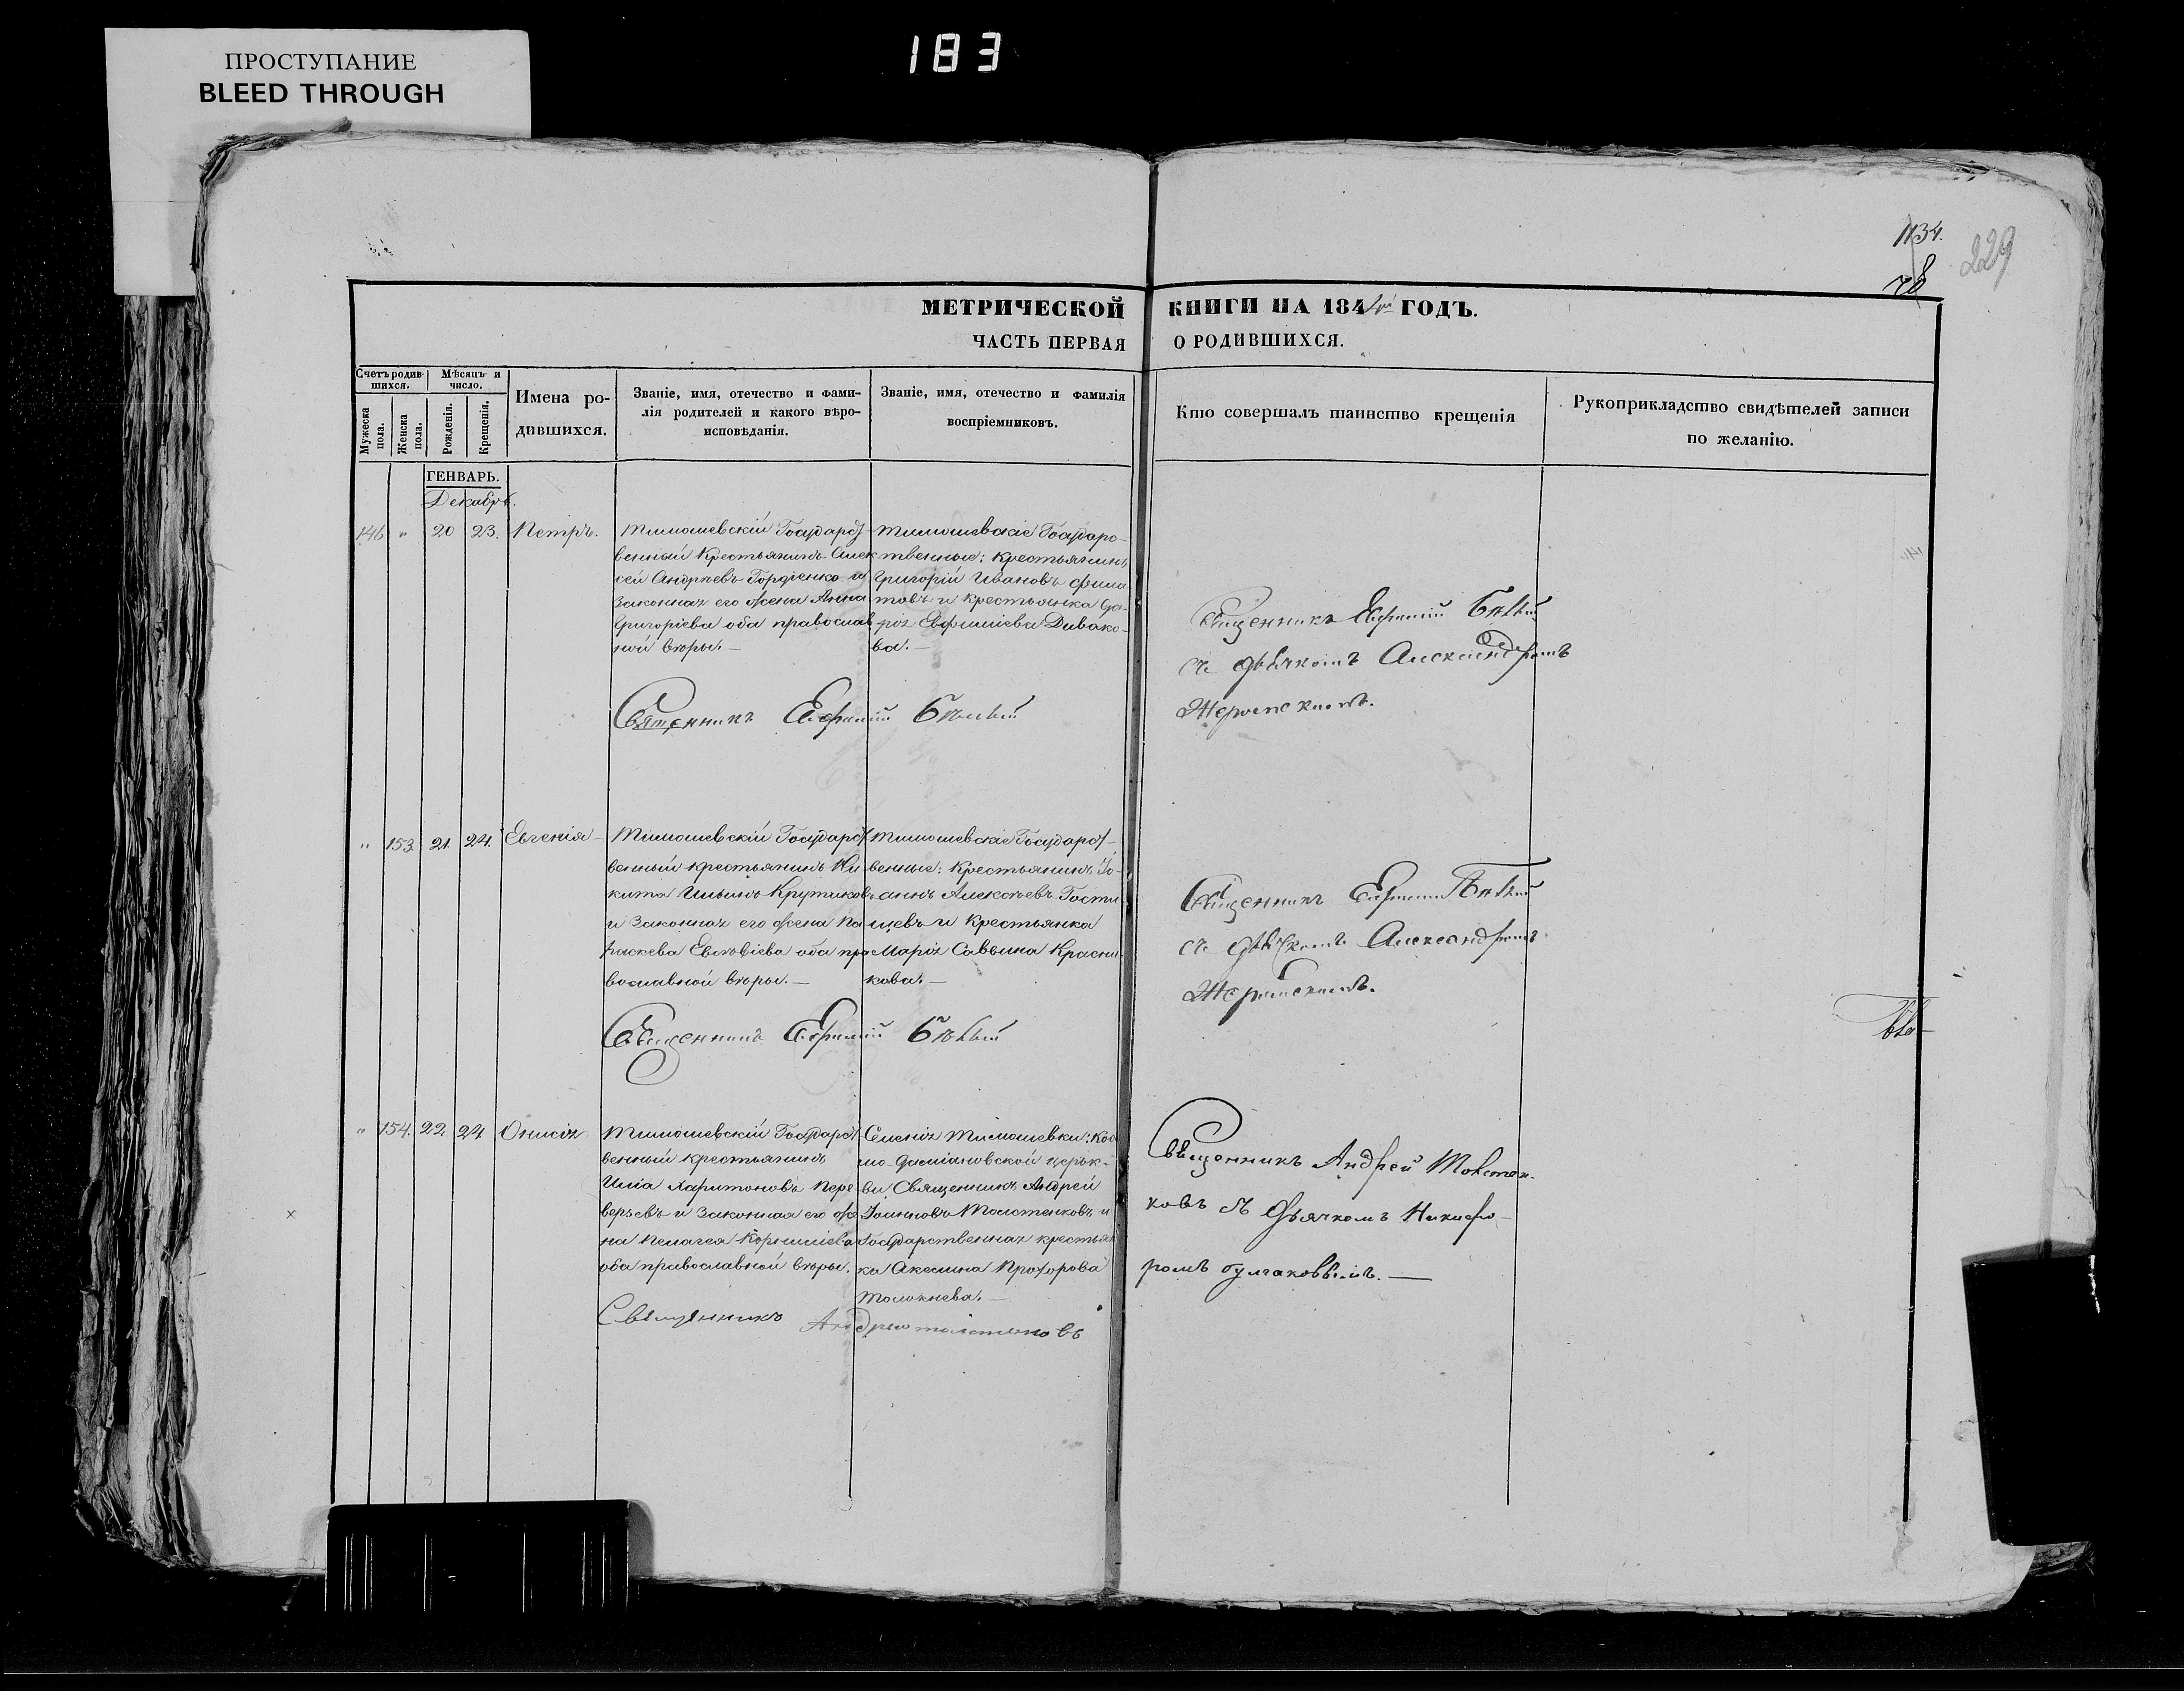 183
ПРОСТУПАНИЕ
BLEED THROUGH
1134.
78
229
МЕТРИЧЕСКОЙ КНИГИ НА 184 ГОДЪ.
ЧАСТЬ ПЕРВАЯ О РОДИВШИХСЯ.
Счетъ родив-
шихся.
Мѣсяцъ и
число.
Мужеска
пола.
Женска
пола.
Рожденія.
Крещенія.
Имена ро-
дившихся.
Званіе, имя, отечество и фами-
лія родителей и какого вѣро-
исповѣданія.
Званіе, имя, отечество и фамилія
воспріемниковъ.
Кто совершалъ таинство крещенія
Рукоприкладство свидѣтелей записи
по желанію.
ГЕНВАРЬ.
Декабрь.
146 " 20 23. Петръ.
Тимошевскій Государст
венный Крестьянинъ Алек
сѣй Андреевъ Гордіенко и
Законная его Жена Анна
Григоріева оба православ
ной вѣры.—
Тимошевскіе Государс-
твенные: Крестьянинъ
Григорій Ивановъ Фила
товъ и Крестьянка Да-
рія Евфиміева Дивако-
ва.—
Священникъ Ефимій Бѣлый
съ дьячкомъ Александромъ
Священникъ Ефимій Бѣлый
" 153. 21. 24. Евгенія—
Тимошевскій Государст
венный крестьянинъ Ни-
кита Ильинъ Крутиковъ
и Законная его Жена Па
раскева оба пра
вославной вѣры.—
Тимошевскіе Государст-
венные: Крестьянинъ Іо-
аннъ Алексѣевъ Гости
щевъ и Крестьянка
Марія Саввина Красни
кова.—
Священникъ Ефимій Бѣлый
съ дьячкомъ Александромъ
Священникъ Ефимій Бѣлый
" 154. 22. 24 Онисія
Тимошевскій Государст
венный крестьянинъ
Илія Харитоновъ Пере
верзевъ и Законная его Же
на Пелагея
оба православной вѣры.
Селенія Тимошевки: Кос
мо-Даміановской церьк-
ви Священникъ Андрей
Іоанновъ Толстенковъ и
Государственная крестьян
ка Акелина Прохорова
Толокнева.—
Священникъ Андрей Товстен-
ковъ съ Дьячкомъ Никифо-
ромъ Булгаковымъ.—
Священникъ Андрей